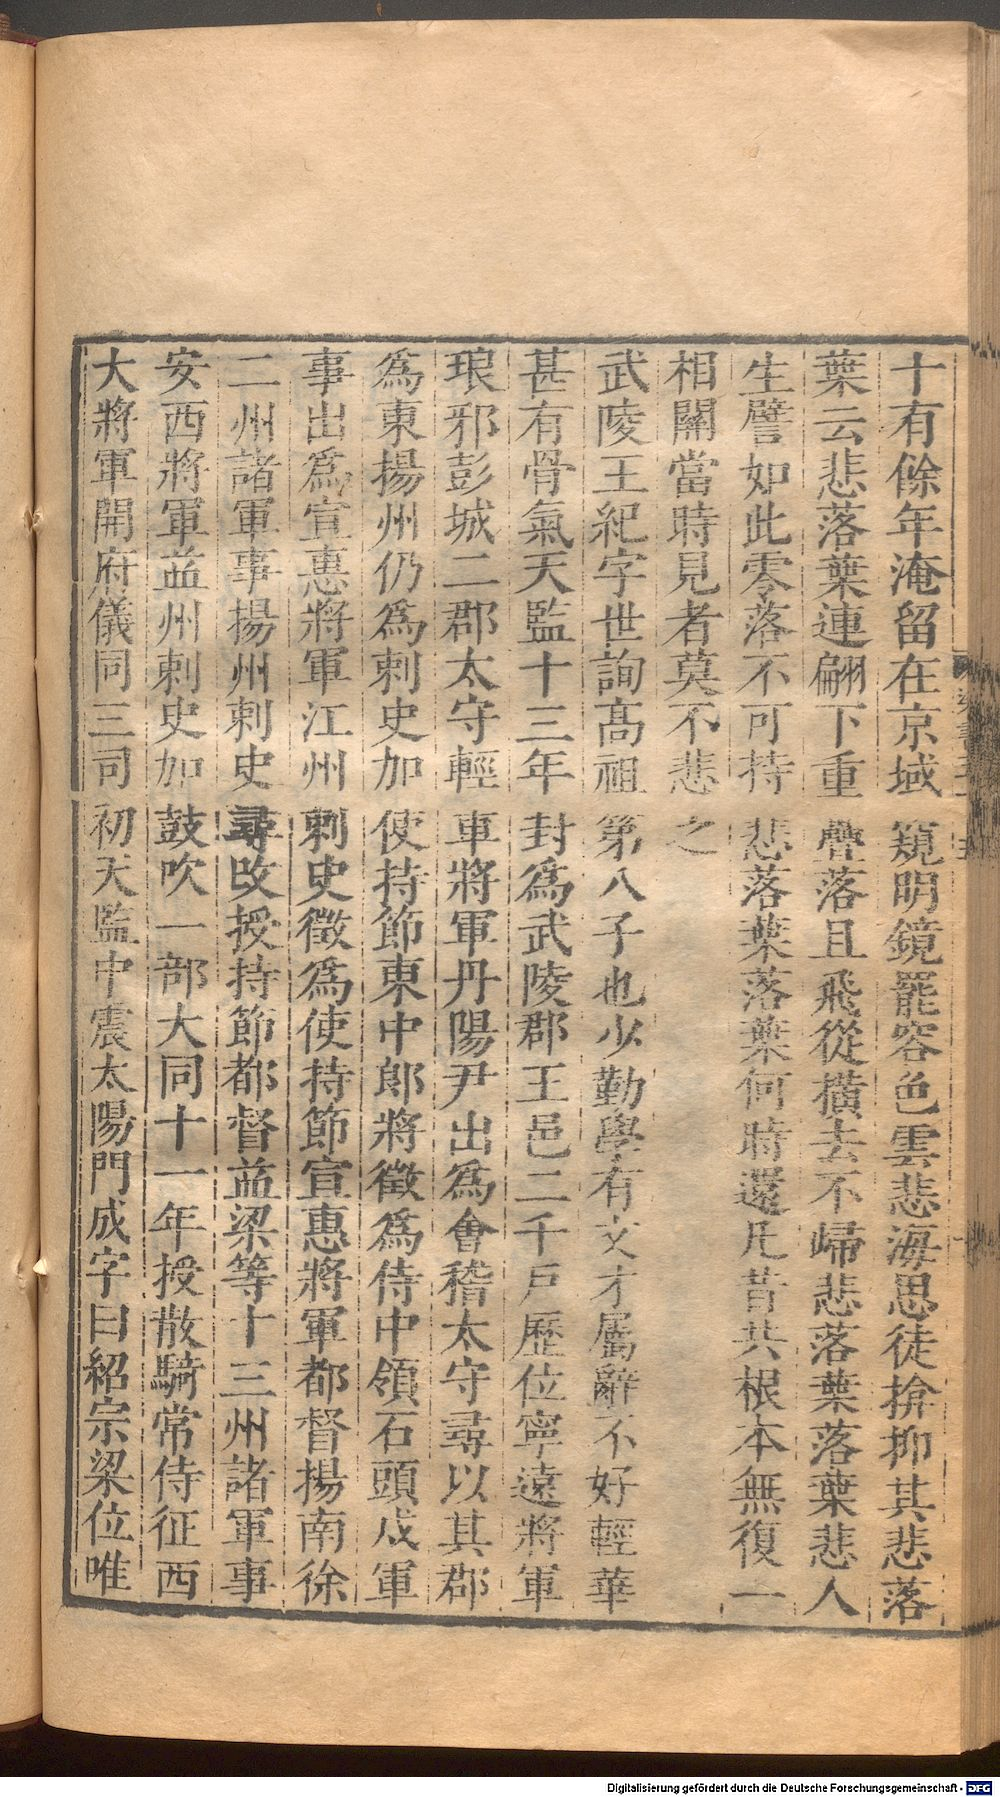 十有餘年淹留在京域窺明鏡罷容色雲悲海思徒揜抑其悲落
葉云悲落葉連翩下重疊落且飛從橫去不歸悲落葉落葉悲人
生譬如此零落不可持悲落葉落葉何時還凡昔共根本無復一
相關當時見者莫不悲之
武陵王紀字世詢髙祖第八子也少勤學有文才屬辭不好輕華
甚有骨氣天監十三年封爲武陵郡王邑二千戸歷位寧遠將軍
琅邪彭城二郡太守輕車將軍丹陽尹出爲會稽太守尋以其郡
爲東揚州仍爲刺史加使持節東中郎將徵爲侍中領石頭戍軍
事出爲宣惠將軍江州刺史徵爲使持節宣惠將軍都督揚南徐
二州諸軍事揚州刺史尋改授持節都督益梁等十三州諸軍事
安西將軍益州刺史加鼓吹一部大同十一年授散騎常侍征西
大將軍開府儀同三司初天監中震太陽門成字曰紹宗梁位唯
Digitalisierung gefördert durch die Deutsche Forschungsgemeinschaft - DFG